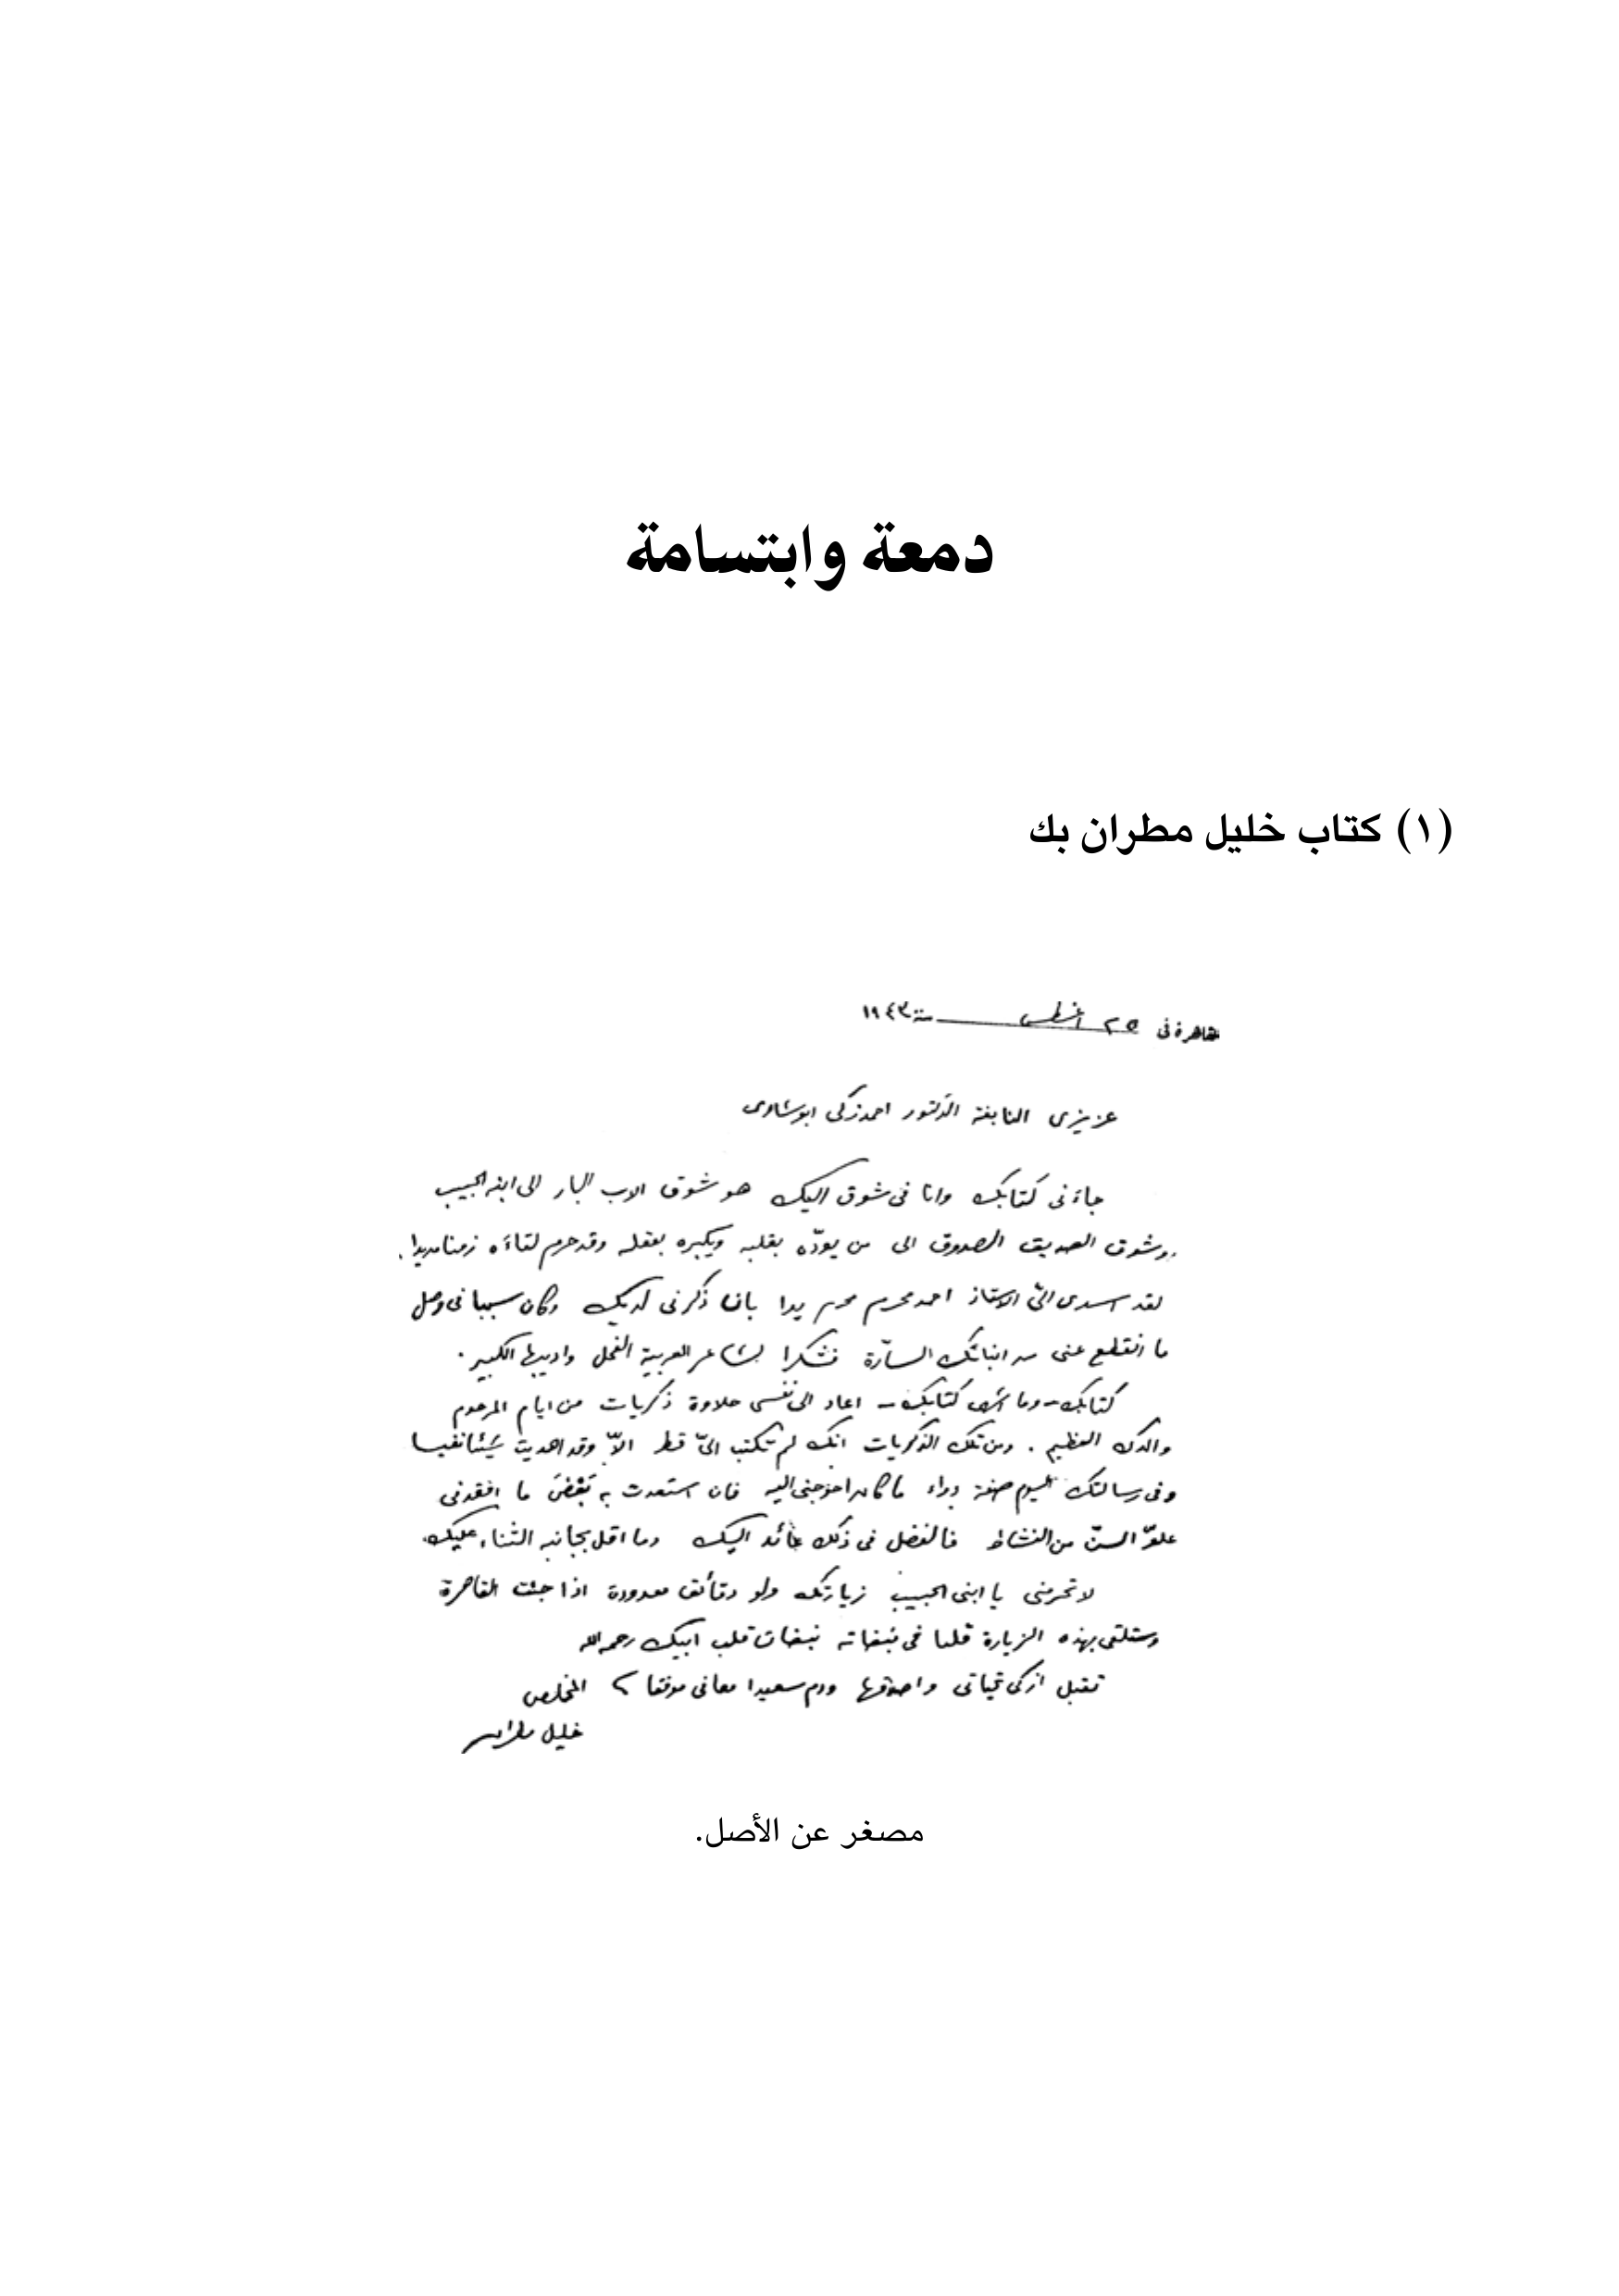 دمعة وابتسامة
(١) كتاب خليل مطران بك
القاهرة في ٢٥ أغسطس سنة ١٩٤٣
عزيزى النابغة الدكتور احمد زكى ابو شادى
جاءنى كتابك وانا فى شوق اليك هو شوق الاب البار الى ابنه الحبيب
وشوق الصديق الصدوق الى من يودّه بقلبه ويكبره بعقله وقد حرم لقاءه زمنا مديدا.
لقد اسدى الىّ الاستاذ احمد محرم يدا بان ذكرنى لديك وكان سببا فى وصل
ما انقطع عنى من انبائك السارّة فشكرا لشاعر العربية الفحل واديبها الكبير.
كتابك - وما كتابك - اعاد الى نفسى حلاوة ذكريات من ايام المرحوم
والدك العظيم. ومن تلك الذكريات انك لم تكتب الىّ قط الاّ وقد اهديت شيئا نفيسا
وفى رسالتك اليوم صفة دواء ما كان احوجنى اليه فان استعدت به بَعْضَ ما افقدنى
علوّ السنّ من النشاط فالفضل فى ذلك عائد اليك وما اقل بجانبه الثناء عليك.
لا تحرمنى يا ابنى الحبيب زيارتك ولو دقائق معدودة اذا جئت القاهرة
وستلقى بهذه الزيارة قلبا فى نبضاته نبضات قلب ابيك رحمه الله
تقبل ازكى تحياتى واصدقها ودم سعيدا معافى موفقا المخلص
خليل مطران
مصغر عن الأصل.